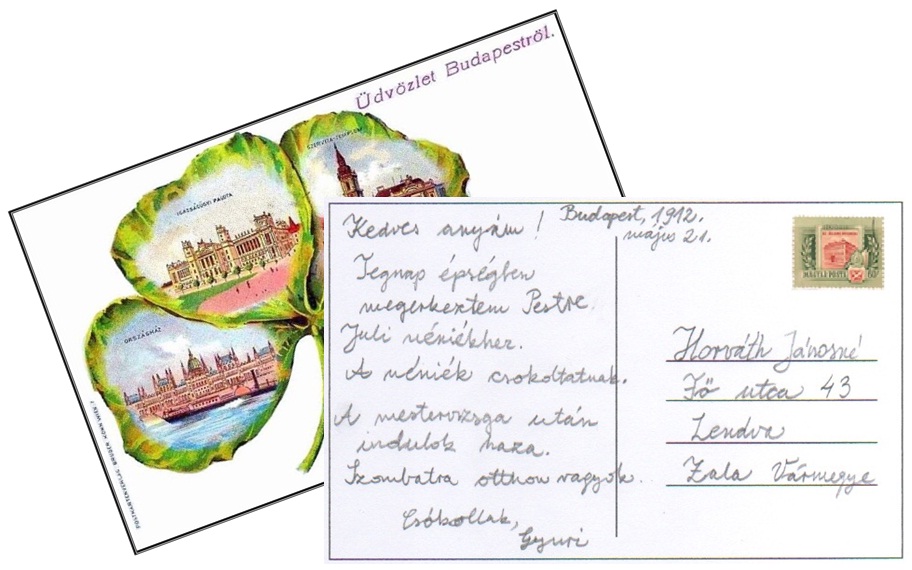 Üdvözlet Budapestről.
SZERVITA-TEMPLOM
IGAZSÁGÜGYI PALOTA
ORSZÁGHÁZ
Budapest, 1912.
május 21.
Kedves anyám!
Tegnap épségben
megerkeztem Pestre
Juli néniékhez.
A néniék csokoltatnak.
A mestervizsga után
indulok haza.
Szombatra otthon vagyok.
Csókollak,
Gyuri
MAGYAR POSTA
60
Horváth Jánosné
Fő utca 43
Lendva
Zala Vármegye